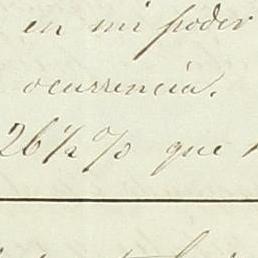 en mi poder
ocurrencia.
26½ % que